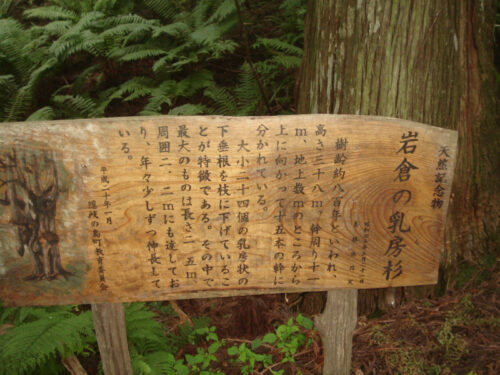 天然記念物
岩倉の乳房杉
樹齢約八百年といわれ、
高さ三十八m、幹周り十一
m、地上数mのところから
上に向かって十五本の幹に
分かれている。
大小二十四個の乳房状の
下垂根を枝に下げているこ
とが特徴である。その中で
最大のものは長さ二．五m
周囲二．二mにも達してお
り、年々少しずつ伸長して
いる。
平成二十年一月
隠岐の島町教育委員会